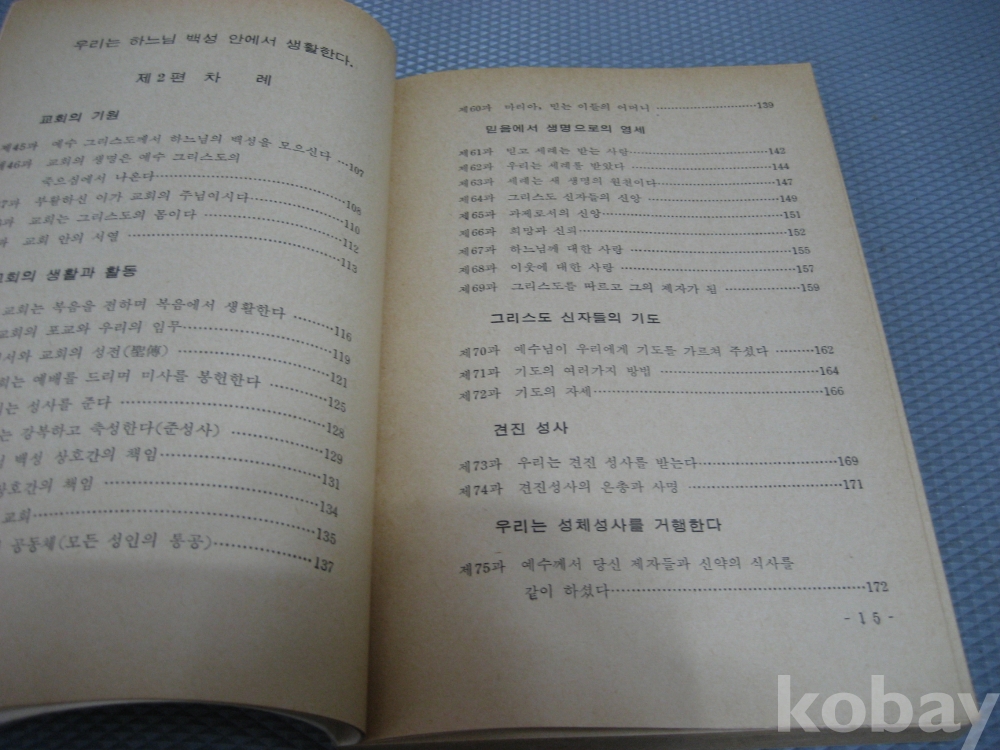 우리는 하느님 백성 안에서 생활한다.
제2편 차 례
교회의 기원
제45과 예수 그리스도께서 하느님의 백성을 모으신다 ···107
제46과 교회의 생명은 예수 그리스도의
죽으심에서 나온다 ··················108
과 부활하신 이가 교회의 주님이시다 ··················110
과 교회는 그리스도의 몸이다 ··················112
과 교회 안의 서열 ··················113
교회의 생활과 활동
교회는 복음을 전하며 복음에서 생활한다 ········116
교회의 포교와 우리의 임무 ··················119
서와 교회의 성전(聖傳) ··················121
회는 예배를 드리며 미사를 봉헌한다 ··················125
는 성사를 준다 ··················128
는 강복하고 축성한다(준성사) ··················129
백성 상호간의 책임 ··················131
상호간의 책임 ··················134
교회 ··················135
공동체(모든 성인의 통공) ··················137
제60과 마리아, 믿는 이들의 어머니 ··················139
믿음에서 생명으로의 영세
제61과 믿고 세례를 받는 사람 ··················142
제62과 우리는 세례를 받았다 ··················144
제63과 세례는 새 생명의 원천이다 ··················147
제64과 그리스도 신자들의 신앙 ··················149
제65과 과제로서의 신앙 ··················151
제66과 희망과 신의 ··················152
제67과 하느님께 대한 사랑 ··················155
제68과 이웃에 대한 사랑 ··················157
제69과 그리스도를 따르고 그의 제자가 됨 ··················159
그리스도 신자들의 기도
제70과 예수님이 우리에게 기도를 가르쳐 주셨다 ·········162
제71과 기도의 여러가지 방법 ··················164
제72과 기도의 자세 ··················166
견진 성사
제73과 우리는 견진 성사를 받는다 ··················169
제74과 견진성사의 은총과 사명 ··················171
우리는 성체성사를 거행한다
제75과 예수께서 당신 제자들과 신약의 식사를
같이 하셨다 ··················172
- 15 -
kobay